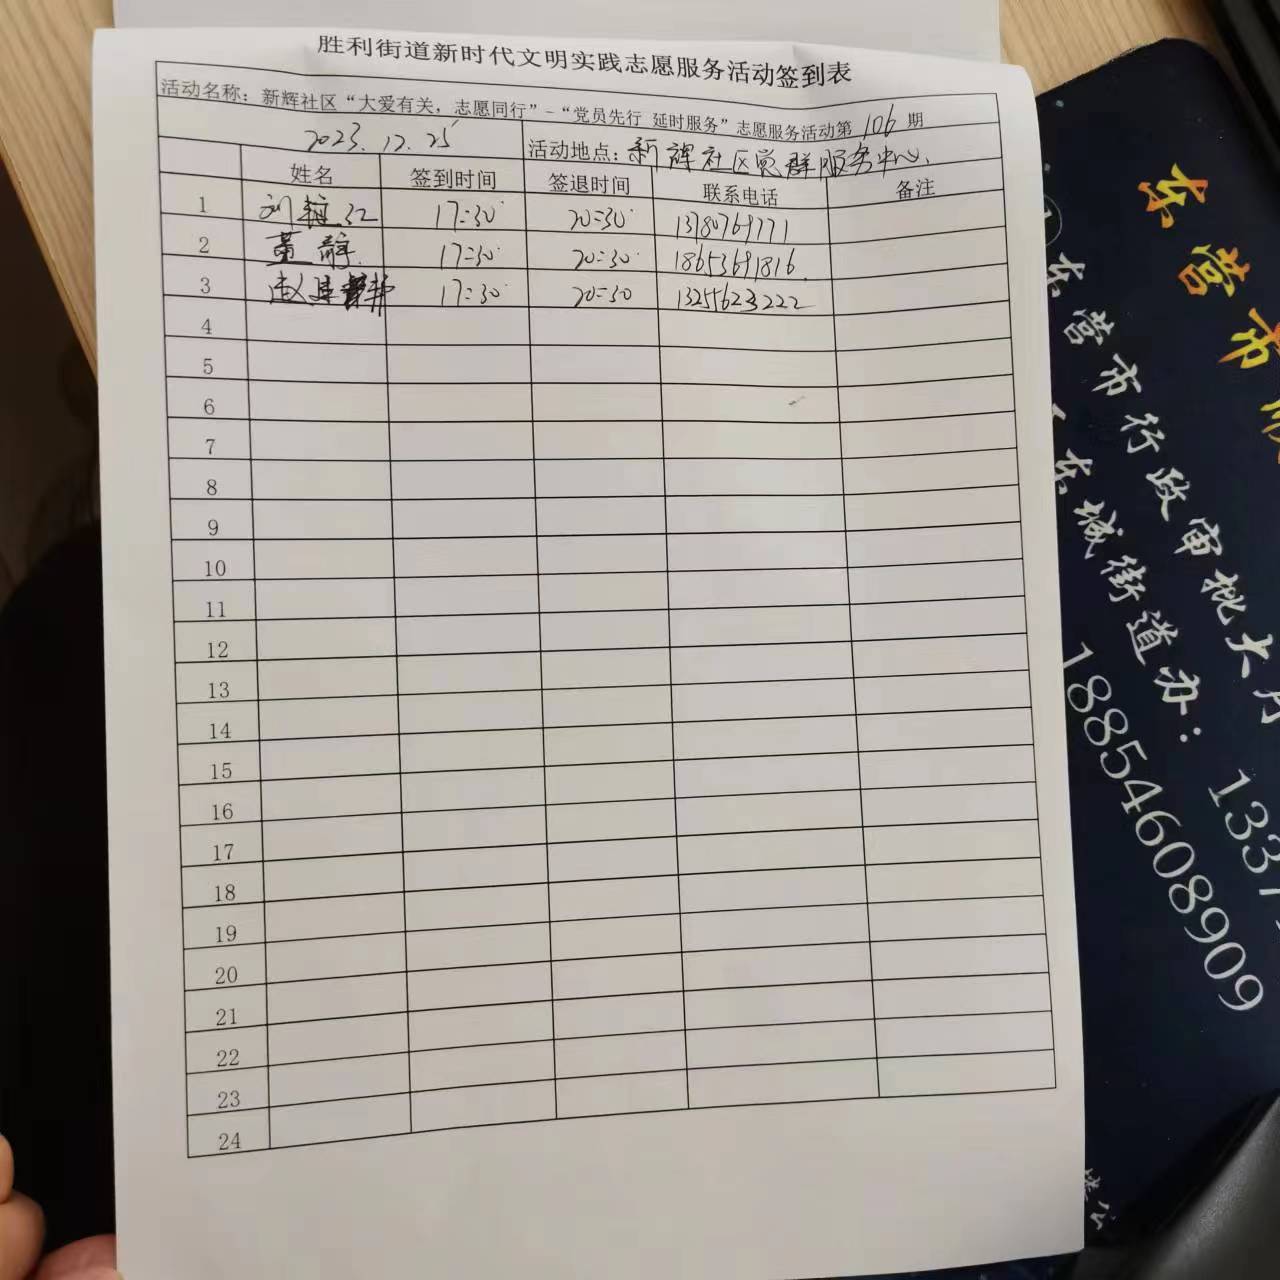 胜利街道新时代文明实践志愿服务活动签到表
活动名称：新辉社区“大爱有关，志愿同行”-“党员先行 延时服务”志愿服务活动第 106 期
2023.12.25 活动地点：新辉社区党群服务中心.
姓名 签到时间 签退时间 联系电话 备注
1 刘 红 17:30 20:30 13780769771
2 董静 17:30 20:30 18653691816
3 赵 17:30 20:30 13255623222
4
5
6
7
8
9
10
11
12
13
14
15
16
17
18
19
20
21
22
23
24
东营市
东营市行政审批大厅
东城街道办：
133
18854608909